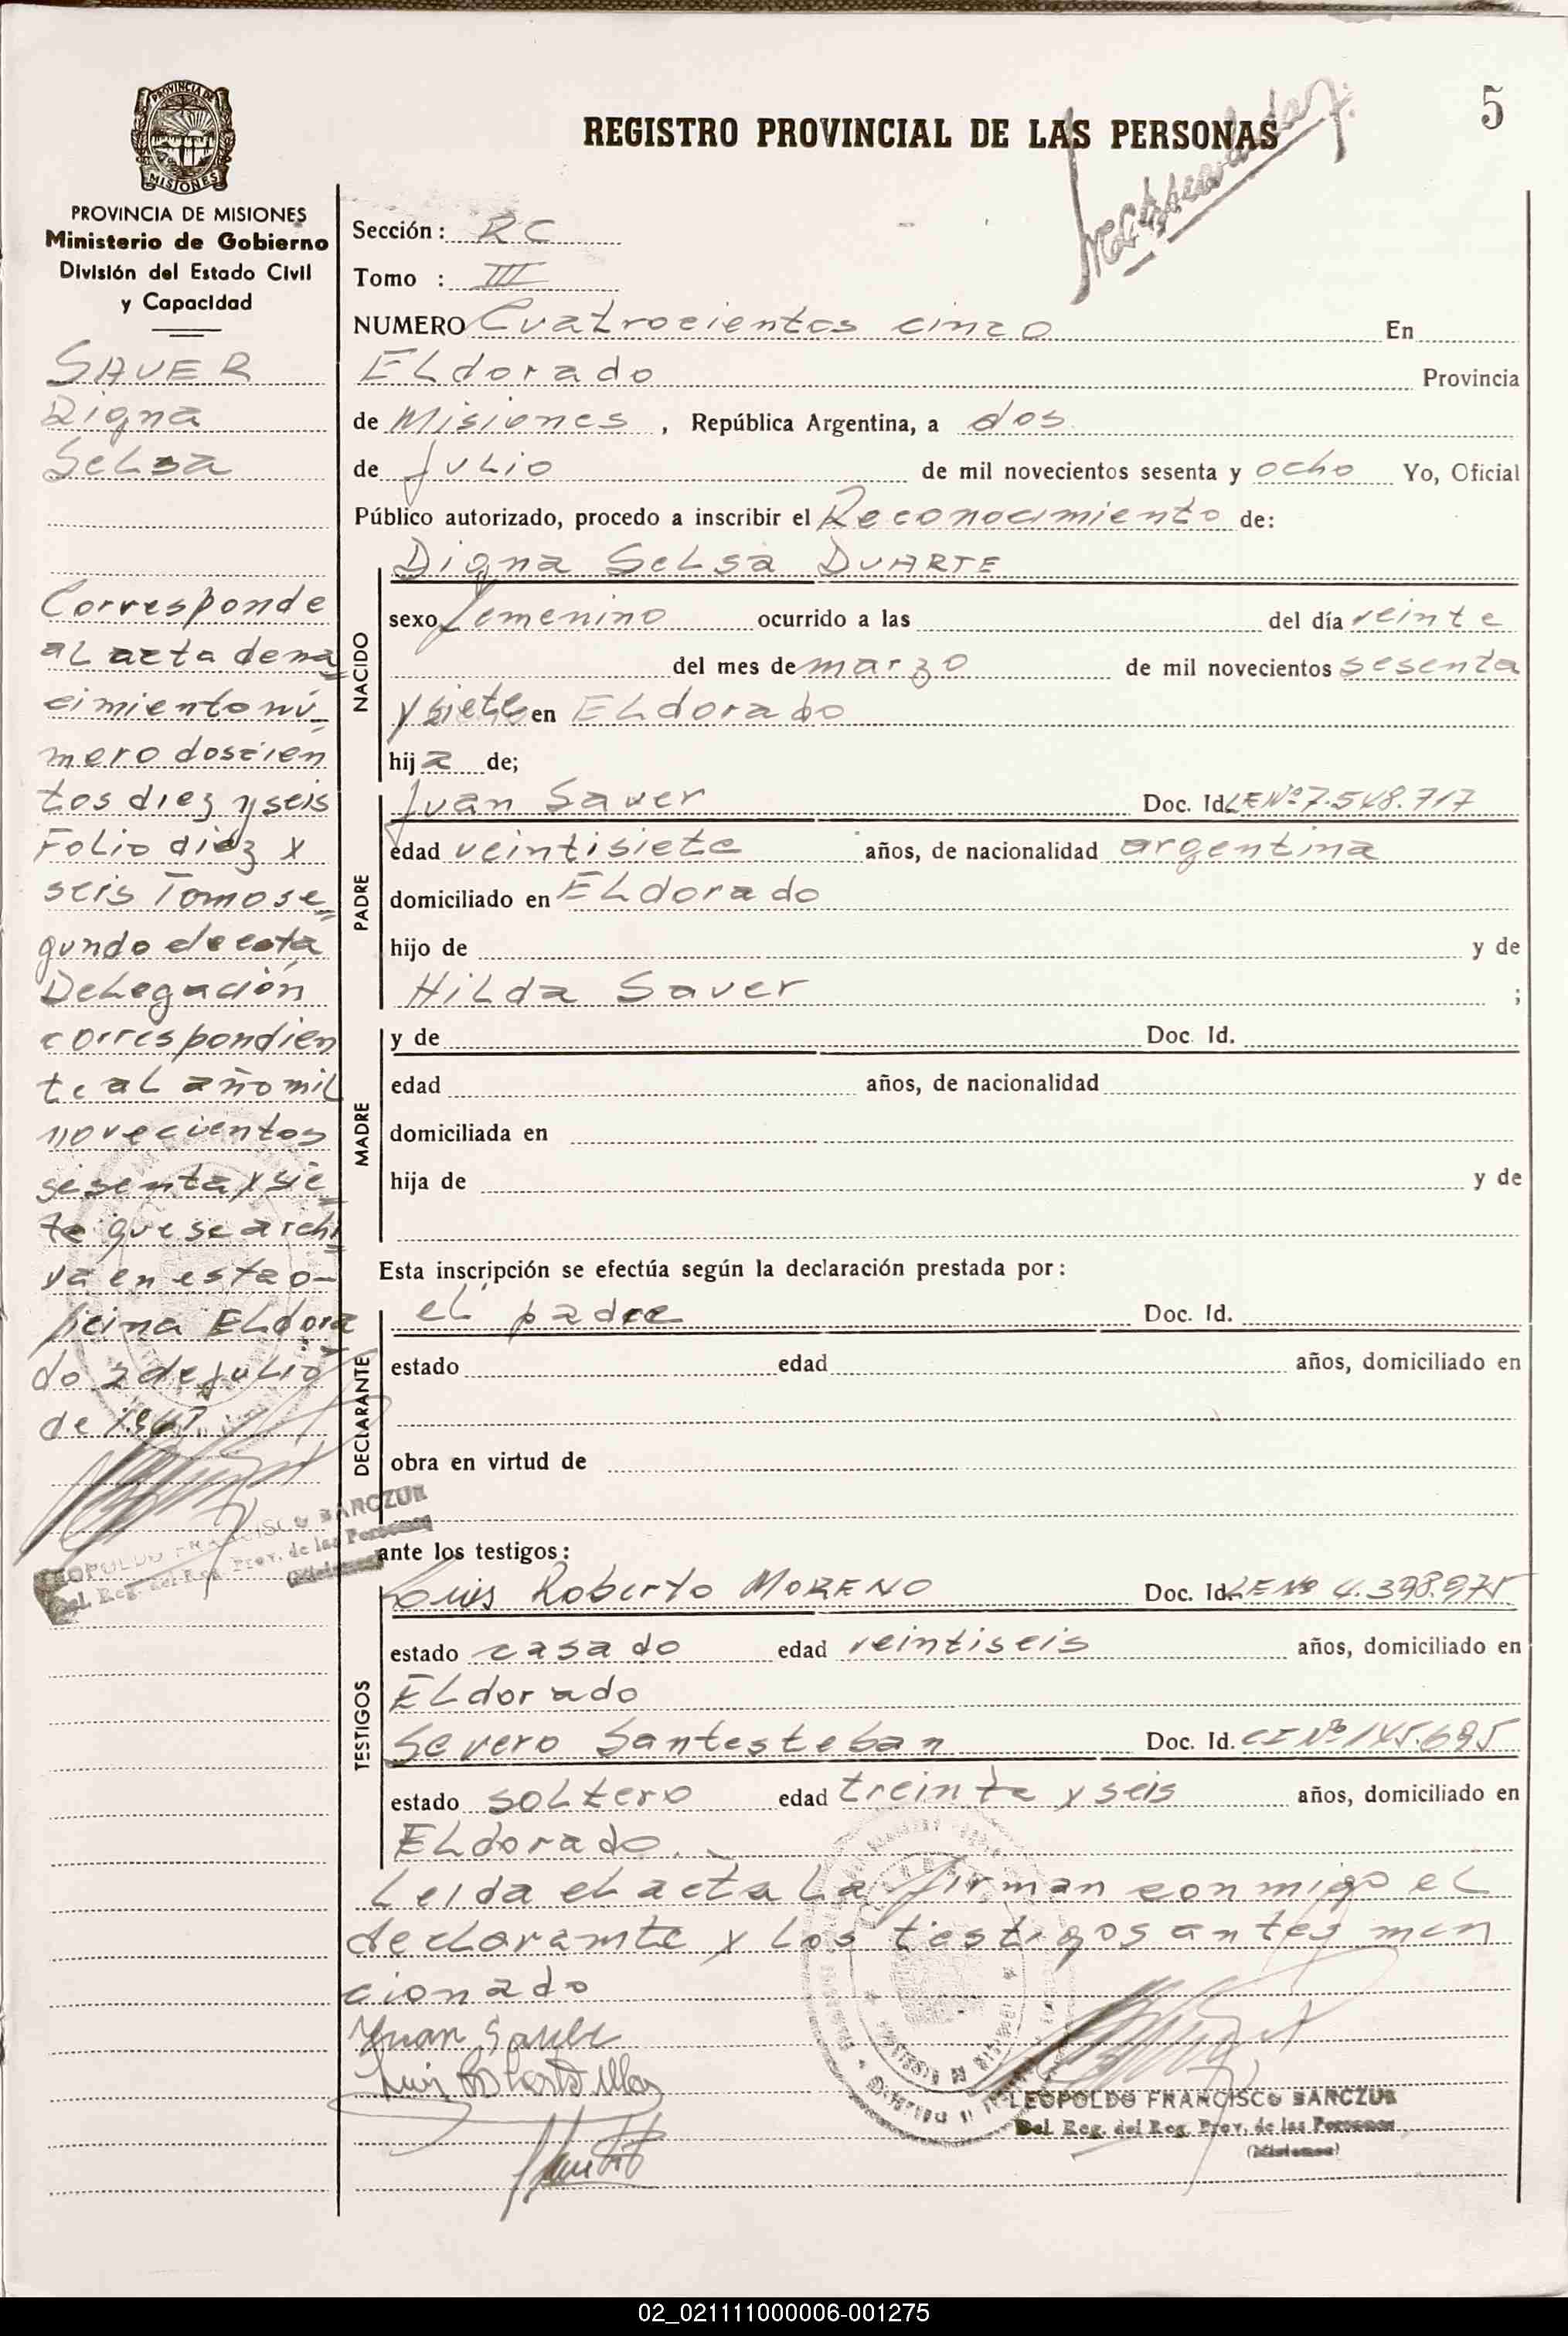 5
REGISTRO PROVINCIAL DE LAS PERSONAS
PROVINCIA DE
MISIONES
PROVINCIA DE MISIONES
Ministerio de Gobierno
División del Estado Civil
y Capacidad
SAUER
Digna
Selsa
Corresponde
al acta de na
cimiento nú
mero doscien
tos diez y seis
Folio diez y
seis Tomo se
gundo de esta
Delegación
correspondien
te al año mil
novecientos
sesenta y sie
te que se archi
va en esta o-
ficina Eldora
do 2 de julio
de
LEOPOLDO FRANCISCO SARCZUK
Del. Reg. del Reg. Prov. de las Personas
(Misiones)
Sección: RC
Tomo : III
NUMERO Cuatrocientos cinco En
Eldorado Provincia
de Misiones, República Argentina, a dos
de Julio de mil novecientos sesenta y ocho Yo, Oficial
Público autorizado, procedo a inscribir el Reconocimiento de:
NACIDO
Digna Selsa DUARTE
sexo femenino ocurrido a las del día veinte
del mes de marzo de mil novecientos sesenta
y siete en Eldorado
hija de;
PADRE
Juan Sauer Doc. Id. LE Nº 7.548.717
edad veintisiete años, de nacionalidad argentina
domiciliado en Eldorado
hijo de y de
Hilda Sauer ;
MADRE
y de Doc. Id.
edad años, de nacionalidad
domiciliada en
hija de y de
Esta inscripción se efectúa según la declaración prestada por:
DECLARANTE
el padre Doc. Id.
estado edad años, domiciliado en
obra en virtud de
ante los testigos:
TESTIGOS
Luis Roberto MORENO Doc. Id. LE Nº 4.398.975
estado casado edad veintiseis años, domiciliado en
Eldorado
Severo Santesteban Doc. Id. CI Nº 145.695
estado soltero edad treinta y seis años, domiciliado en
Eldorado.
Leida el acta la firman conmigo el
declarante y los testigos antes men
cionado
Juan Sauer
LEOPOLDO FRANCISCO SARCZUK
Del. Reg. del Reg. Prov. de las Personas
(Misiones)
02_021111000006-001275